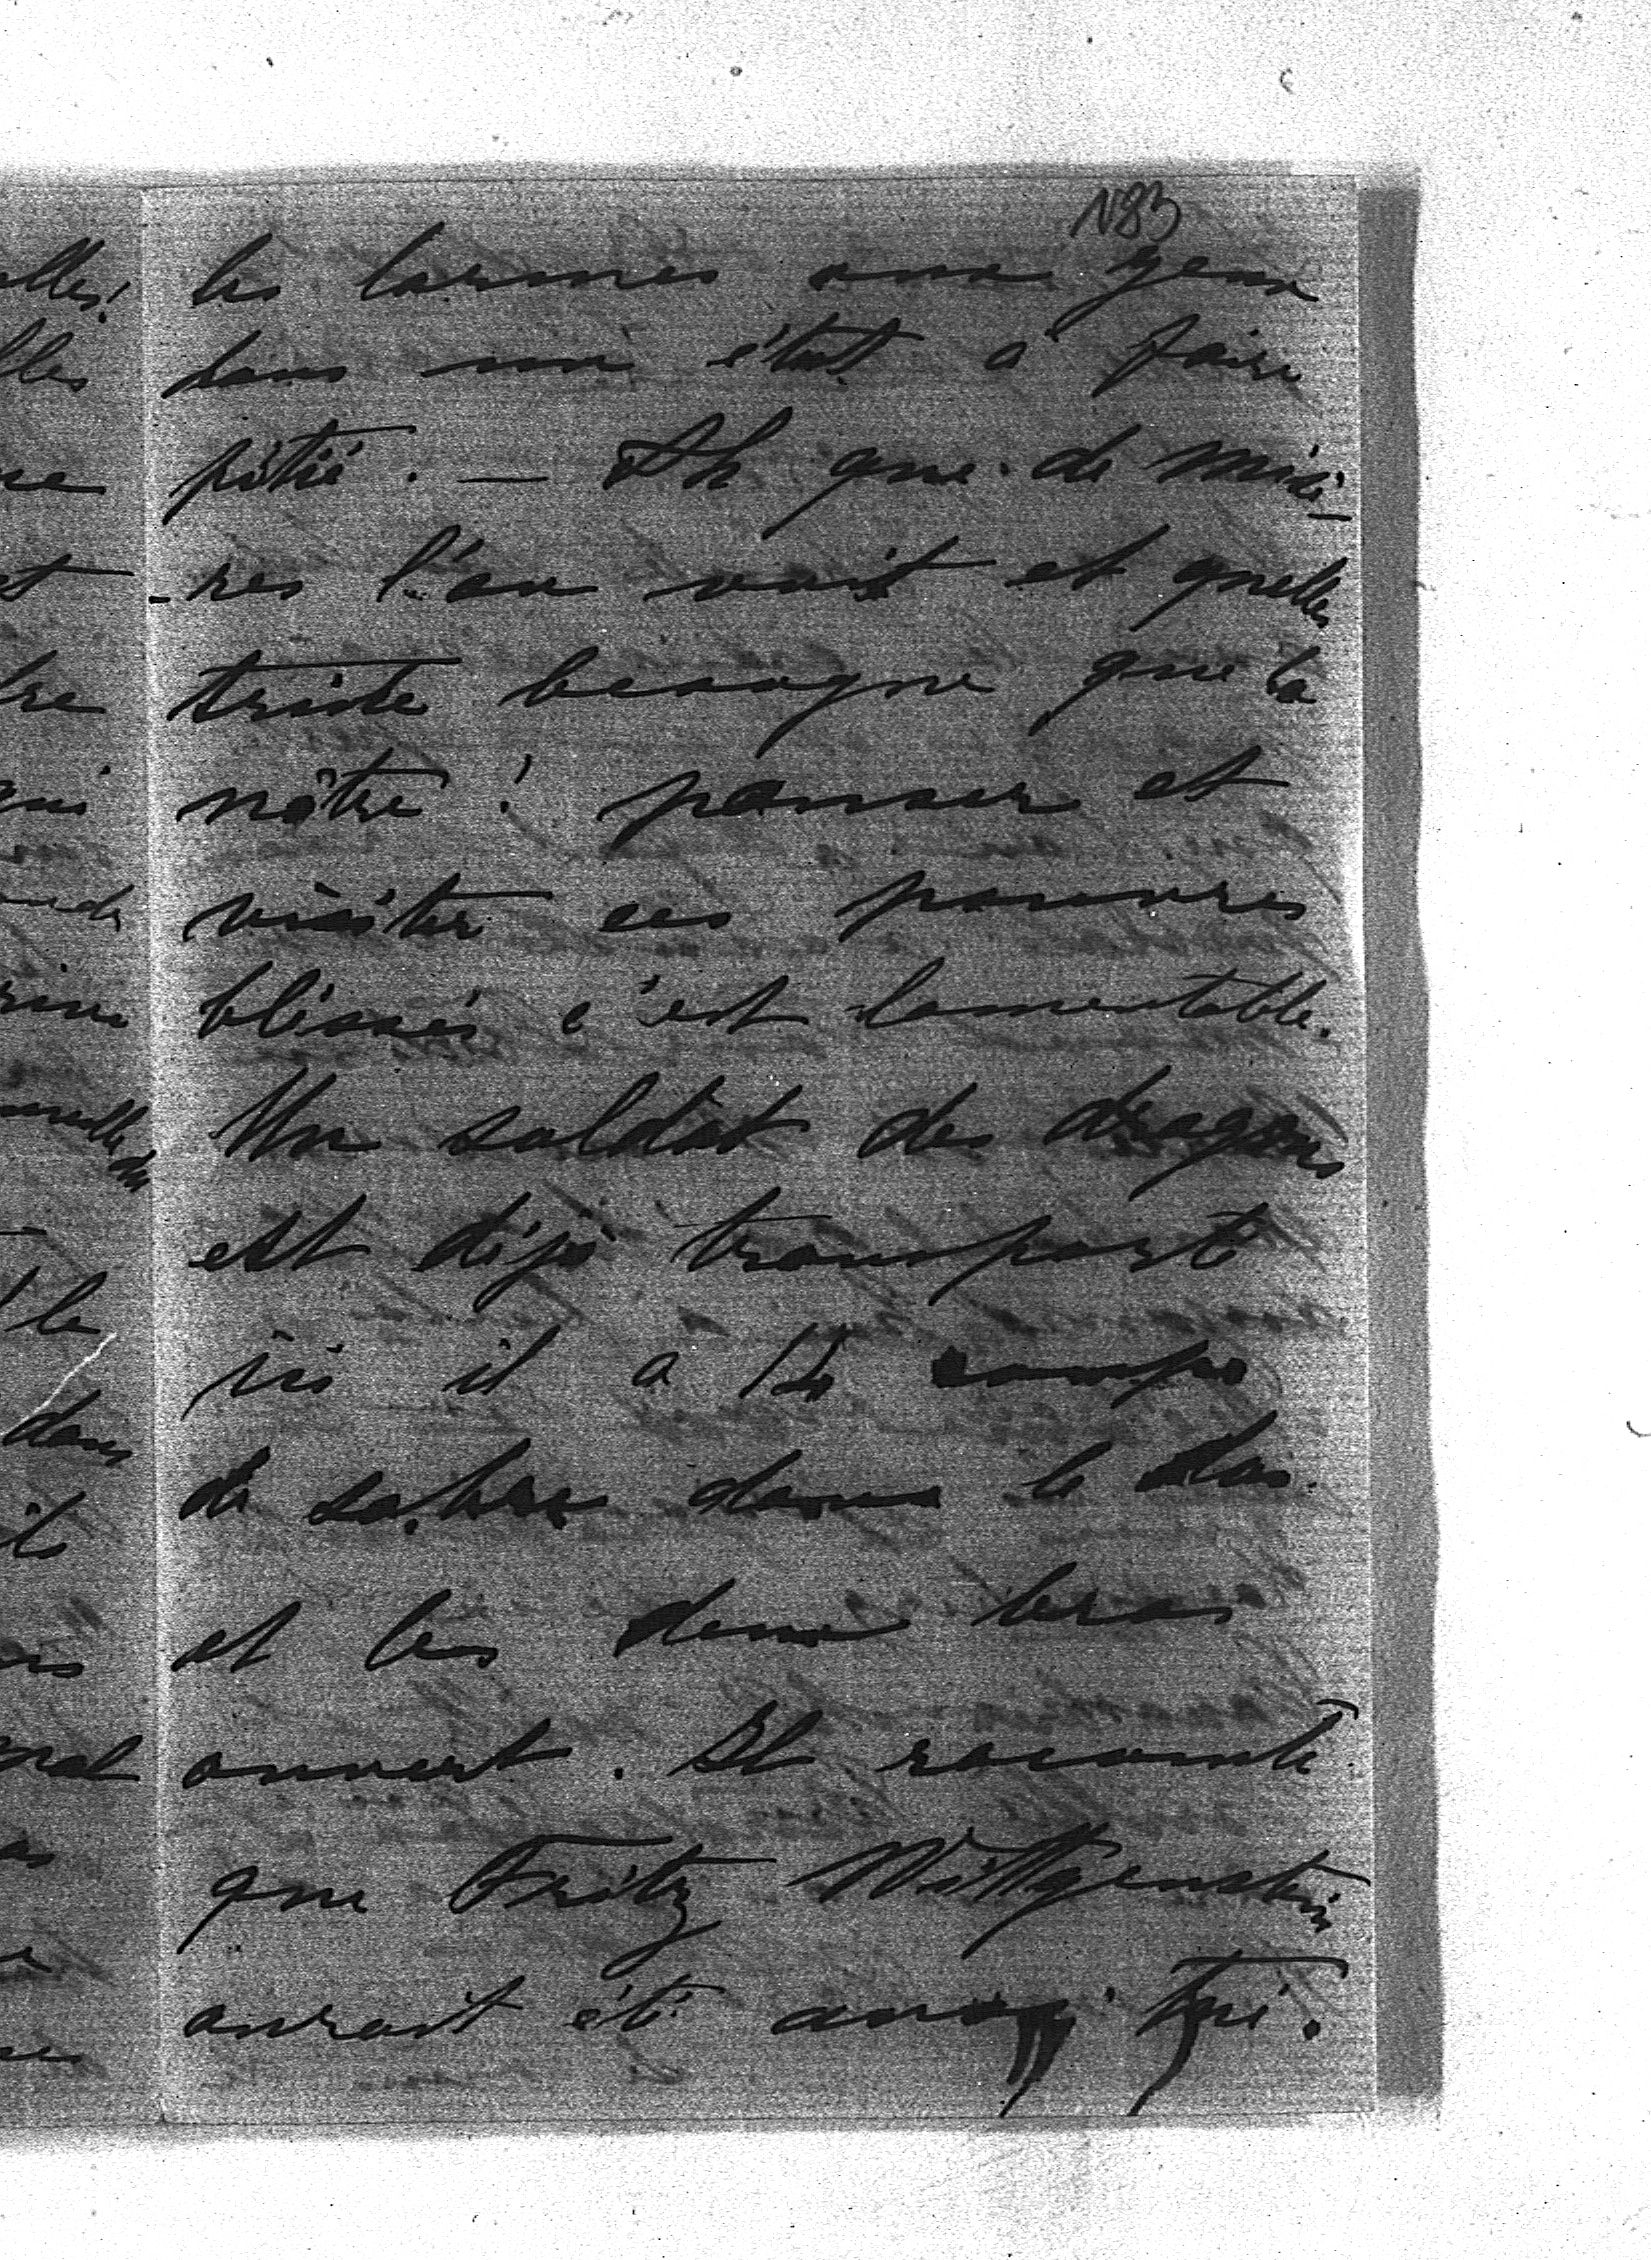 N83
les larmes aux yeux
dans un état à faire
pitié. — Ah que de misè-
-res l'on voit et quelles
triste besogne que la
nôtre! panser et
visiter ces pauvres
blessés c'est lamentable.
Un soldat des dragons
est déjà transporté
ici il a 14 coups
de sabre dans le dos
et les deux bras
ouvert. Il raconte
que Fritz Wittgenstein
aurait été aussi tué.